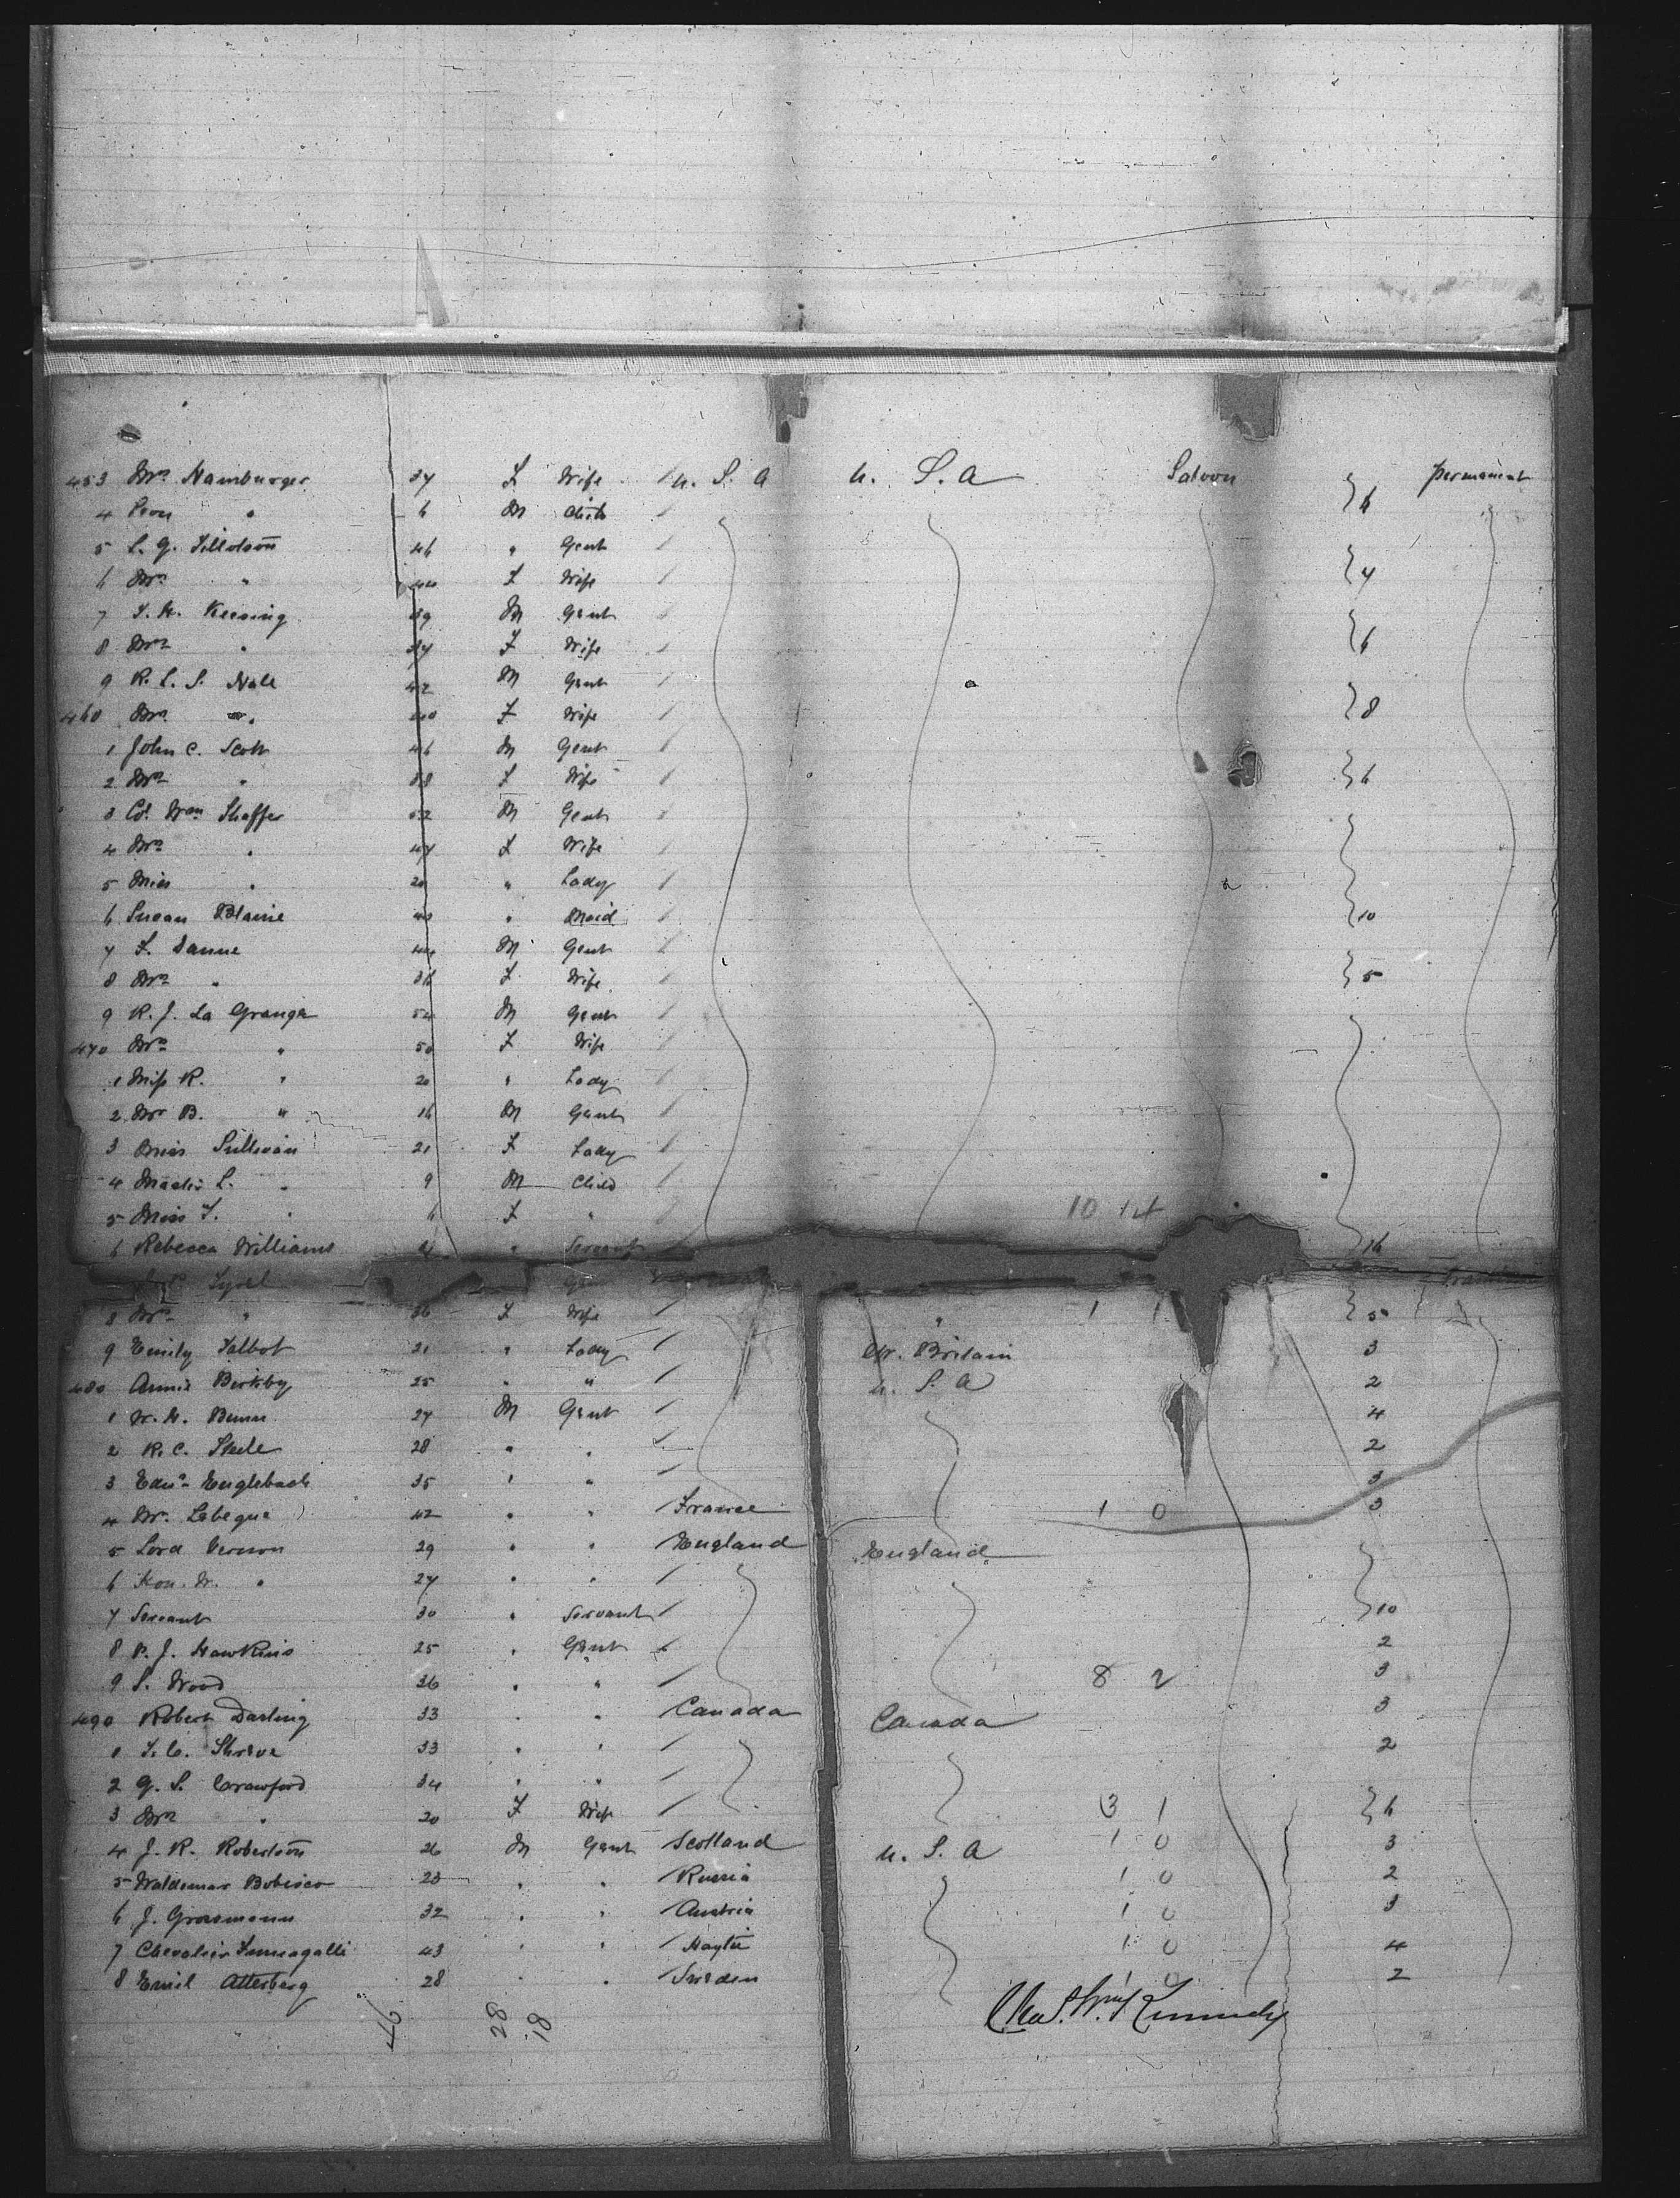 453 Mrs Hamburger 37 F Wife U. S. A U. S. A Saloon permanent
4 Leon " 6 M Child } 6
5 L. G. Tillotson 46 " Gent
6 Mrs " 44 F Wife } 4
7 T. H. Keesing 39 M Gent
8 Mrs " 34 F Wife } 6
9 R. L. S. Hale 42 M Gent
460 Mrs " 40 F Wife } 8
1 John C. Scott 46 M Gent
2 Mrs " 38 F Wife } 6
3 Col. Wm Shaffer 52 M Gent
4 Mrs " 47 F Wife
5 Miss " 20 " Lady
6 Susan Blaine 40 " Maid } 10
7 F. Danne 44 M Gent
8 Mrs " 36 F Wife } 5
9 R. J. La Grange 54 M Gent
470 Mrs " 50 F Wife
1 Miss R. " 20 " Lady
2 Mr B. " 16 M Gent
3 Miss Sullivan 21 F Lady
4 Master L. " 9 M Child
5 Miss F. " 6 F " 10 14
6 Rebecca Williams " Servant } 16
8 Mrs " 36 F Wife " 1 1 } 5
9 Emily Talbot 21 " Lady Gr. Britain 3
480 Annie Birkby 25 " " U. S. A 2
1 W. H. Bunn 27 M Gent 4
2 R. C. Steele 28 " " 2
3 Edwd Englebach 35 " " 3
4 Mr. Labeque 42 " " France 1 0 3
5 Lord Vernon 29 " " England England
6 Hon. W. " 27 " "
7 Servant 30 " Servant } 10
8 P. J. Hawkins 25 " Gent 2
9 S. Wood 36 " " 8 2 3
490 Robert Darling 33 " " Canada Canada 3
1 T. C. Shreve 33 " " 2
2 G. S. Crawford 34 " "
3 Mrs " 20 F Wife 3 1 } 6
4 J. R. Robertson 26 M Gent Scotland U. S. A 1 0 3
5 Waldemar Bobisco 23 " " Russia 1 0 2
6 J. Grossmann 32 " " Austria 1 0 3
7 Chevalier Fumagalli 43 " " Hayti 1 0 4
8 Emil Atterberg 28 " " Sweden 1 0 2
46 28 18